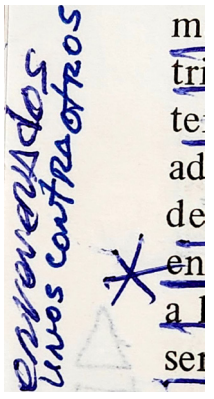 enfrentados
UNOS CONTRA OTROS
m
tri
te
ad
de
en
a l
ser